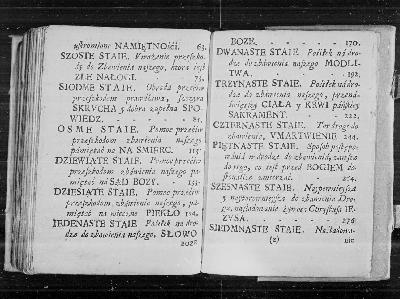 uskromione NAMIĘTNOŚCI. 63.
SZOSTE STAIE. Wrażenia przeszko-
dą do Zbawienia naszego, ktora iest
ZŁE NAŁOGI. 73.
SIODME STAIE. Obrona przeciw
przeszkodom prawdziwa, szczera
SKRVCHA y dobra zupełna SPO
WIEDZ. 85.
OSME STAIE. Pomoc przeciw
przeszkodom zbawienia naszego
pámiętáć na NA SMIERC. 115.
DZIEWIATE STAIE. Pomoc przeciw
przeszkodom zbáwienia nászego pa-
miętáć ná SAD BOZY. 135.
DZIESIĄTE STAIE. Pomoc przeciw
przeszkodom, zbáwienia nászego, pá-
miętáć ná wieczne PIEKŁO 154.
IEDENASTE STAIE Posiłek ná dro-
dze do zbáwienia nászego, SŁOWO
BOZE
BOZE. 170.
DWANASTE STAIE Posiłek ná dro-
dze do zbáwienia naszego MODLI-
TWA. 192.
TRZYNASTE STAIE. Posiłek ná dro-
dze do zbawienia naszego, przenaś-
więtszy CIAŁA y KRWI páńskiey
SAKRAMENT. 222.
CZTERNASTE STAIE. Tor drogi do
zbawienia, VMARTWIENIE 244.
PIĘTNASTE STAIE. Sposob postępo-
wania w drodze do zbáwienia, záwsze
do tego, co iest przed BOGIEM do-
zmierzać. 254.
SZESNASTE STAIE. Naypewnieysza
y nayprostsza do zbáwienia Dro-
ga, naśladowanie żywota Chrystusa IE-
ZVSA. 276
SIEDMNASTE STAIE. Neskłona-
(z) nie